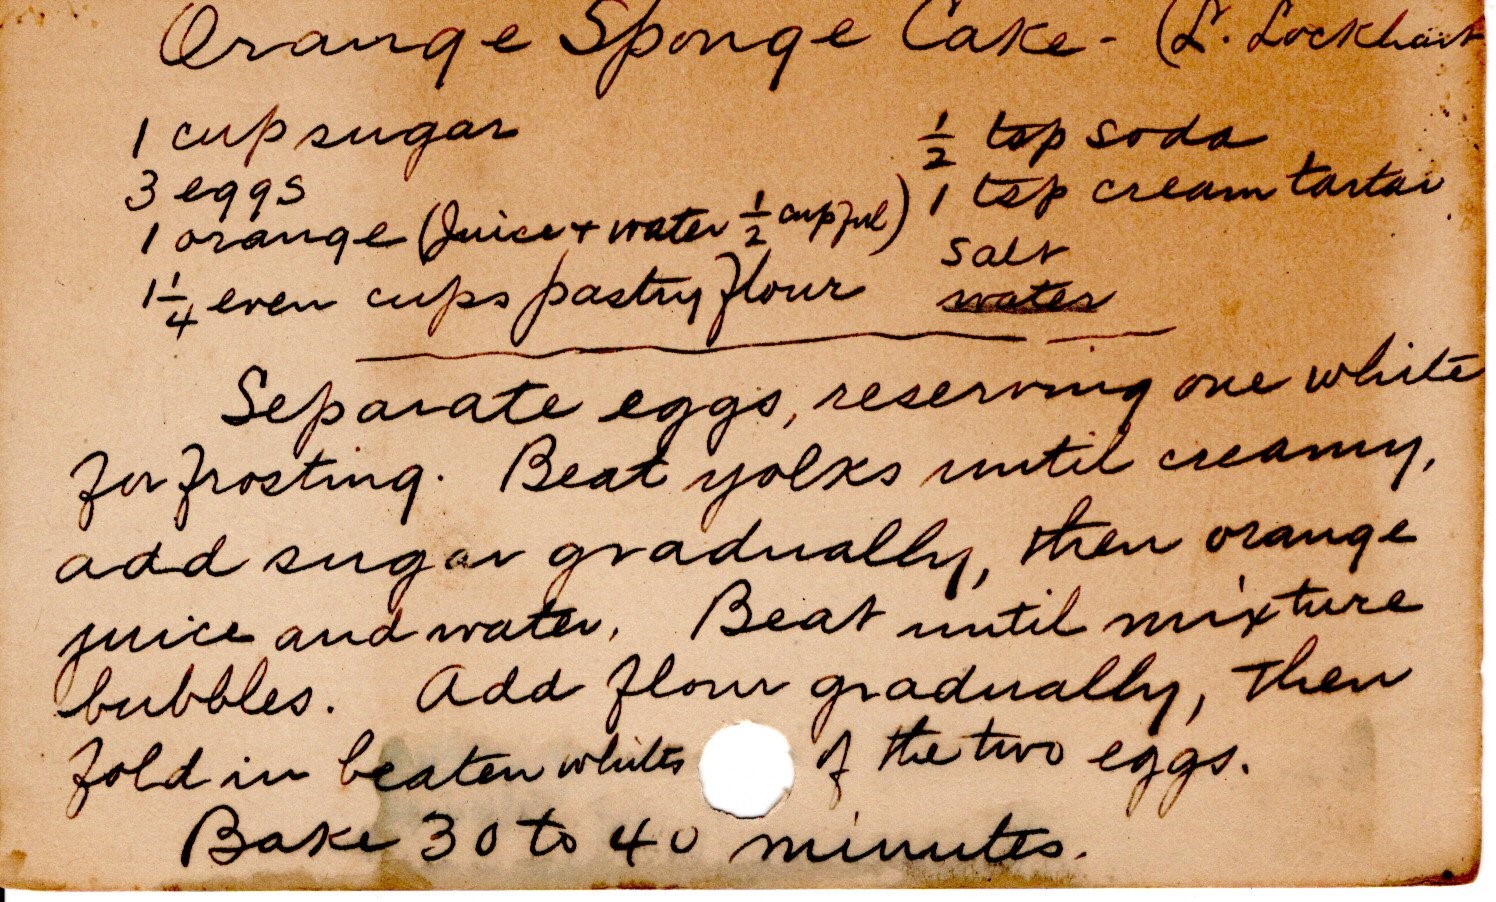 Orange Sponge Cake - (L. Lockhart
1 cup sugar
3 eggs
1 orange (Juice + water 1/2 cupful)
1 1/4 even cups pastry flour
1/2 tsp soda
1 tsp cream tartar
salt
water
Separate eggs, reserving one white
for frosting. Beat yolks until creamy,
add sugar gradually, then orange
juice and water. Beat until mixture
bubbles. Add flour gradually, then
fold in beaten whites of the two eggs.
Bake 30 to 40 minutes.